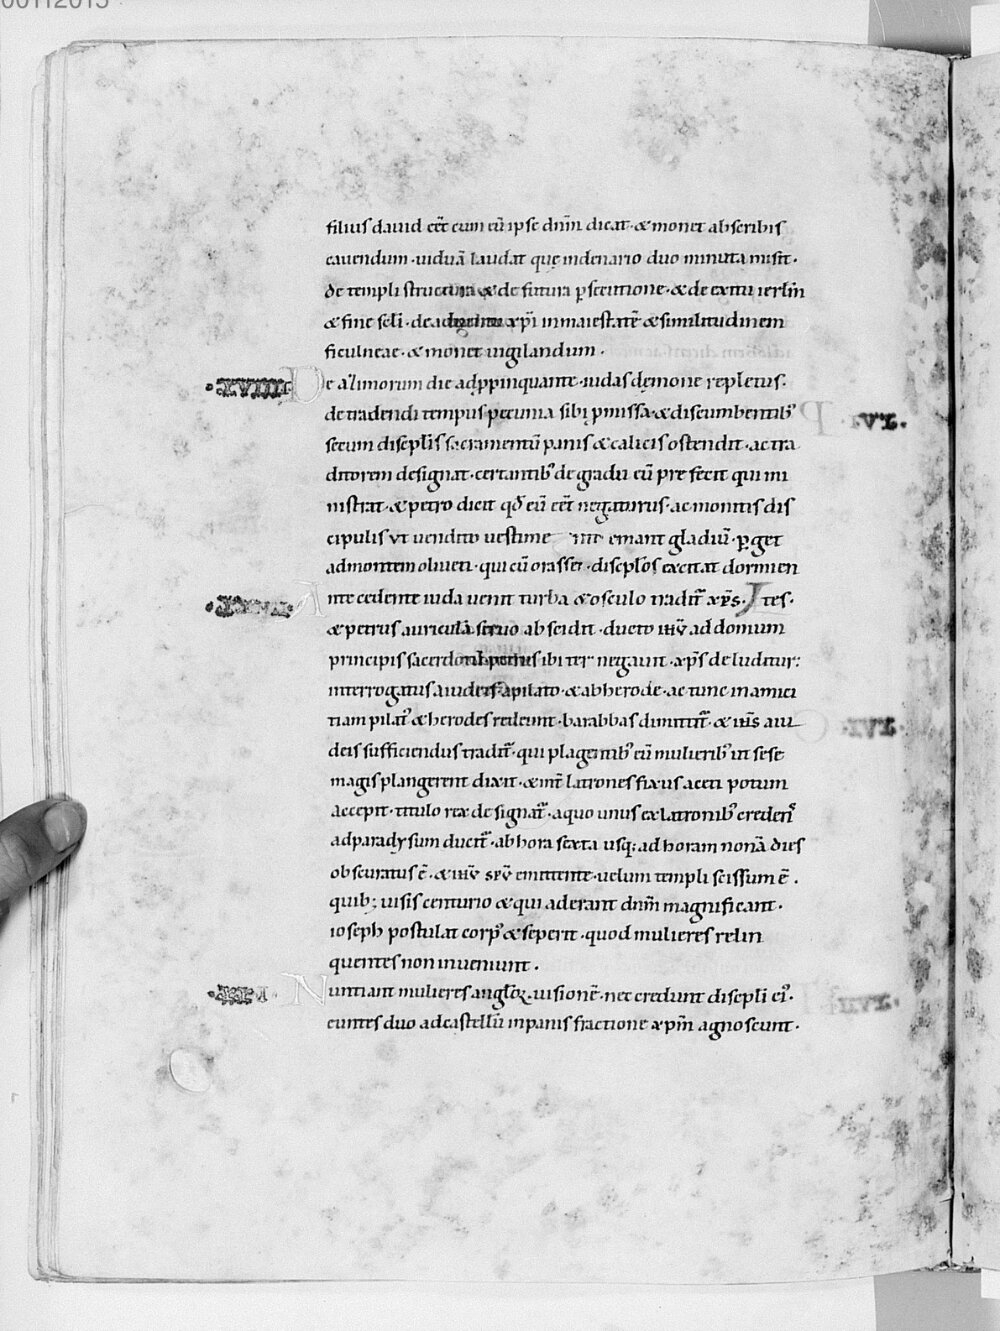 00112015
filius dauid eēt cum eū ipse dnm̄ dicat · & monet ab scribis
cauendum · uiduā laudat quę in denario duo minuta misit ·
de templi structura & de futura p̱secutione · & de exitu ierl̄m
& fine scl̄i · de aduentu xp̄i in maiestatē & similitudinem
ficulneae · & monet uigilandum .
· XVIIII · De azimorum die adp̱pinquante · iudas demone repletus ·
de tradendi tempus pecunia sibi p̱missa · & discumbentib'
secum discipl̄is sacramentū panis & calicis ostendit · ac tra
ditorem designat · certantib' de gradu eū pre fecit qui mi
nistrat · & petro dicit qđ eū eēt negaturus · ac monitis dis
cipulis ut uendito uestime emant gladiū · p̱get
ad montem oliueti · qui cū orasset · discipl̄os excitat dormien
· XX · Ante cedente iuda uenit turba & osculo tradit̄ xp̄s · tes ·
& petrus auriculā seruo abscidit · ducto ih̄u ad domum
principis sacerdotū petrus ibi ter negauit · xp̄s deluditur :
interrogatus a iudeis a pilato · & ab herode · ac tunc in amici
tiam pilat' & herodes redeunt · barabbas dimittit̄ · & ih̄s a iu
deis sufficiendus tradit̄ · qui plagentib' eū mulierib' ut sese
magis plangerent dixit · & int̄ latrones fixus aceti potum
accepit · titulo rex designat̄ · a quo unus ex latronib' creden̄s
ad paradysum ducit̄ · ab hora sexta usq; ad horam nonā dies
obscuratus ē · & ih̄u sp̄u emittente · uelum templi scissum ē .
quib; uisis centurio & qui aderant dnm̄ magnificant ·
ioseph postulat corp' & seperit · quod mulieres relin
quentes non inueniunt ·
· XXI · Nuntiant mulieres anglōꝝ uisionē · nec credunt discipl̄i ei' ·
euntes duo ad castellū in panis fractione xp̄m agnoscunt ·